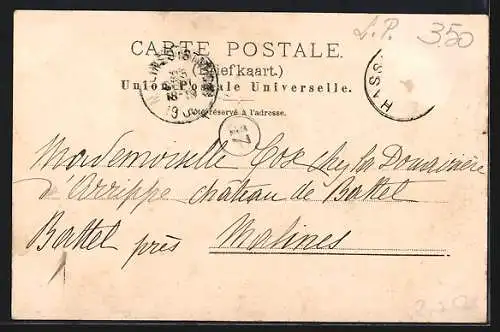 L.P. 350
CARTE POSTALE.
(Briefkaart.)
Union Postale Universelle.
Côté réservé à l'adresse.
HASS
7
Mademoiselle chez la Douairière
d'Arrippe château de Battel
Battel près Malines